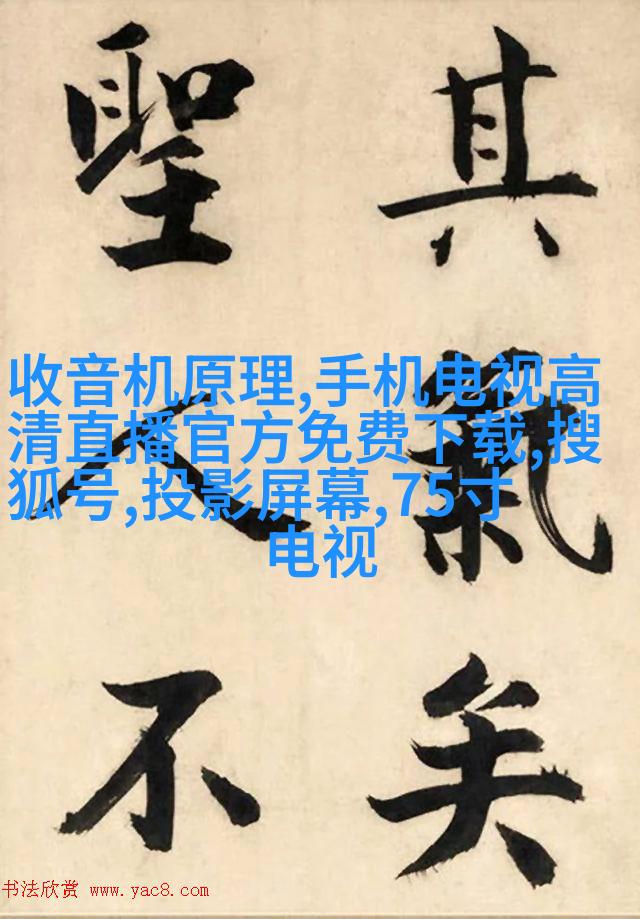 其氣矣
聖人不
收音机原理,手机电视高
清直播官方免费下载,搜
狐号,投影屏幕,75寸
电视
书法欣赏 www.yac8.com